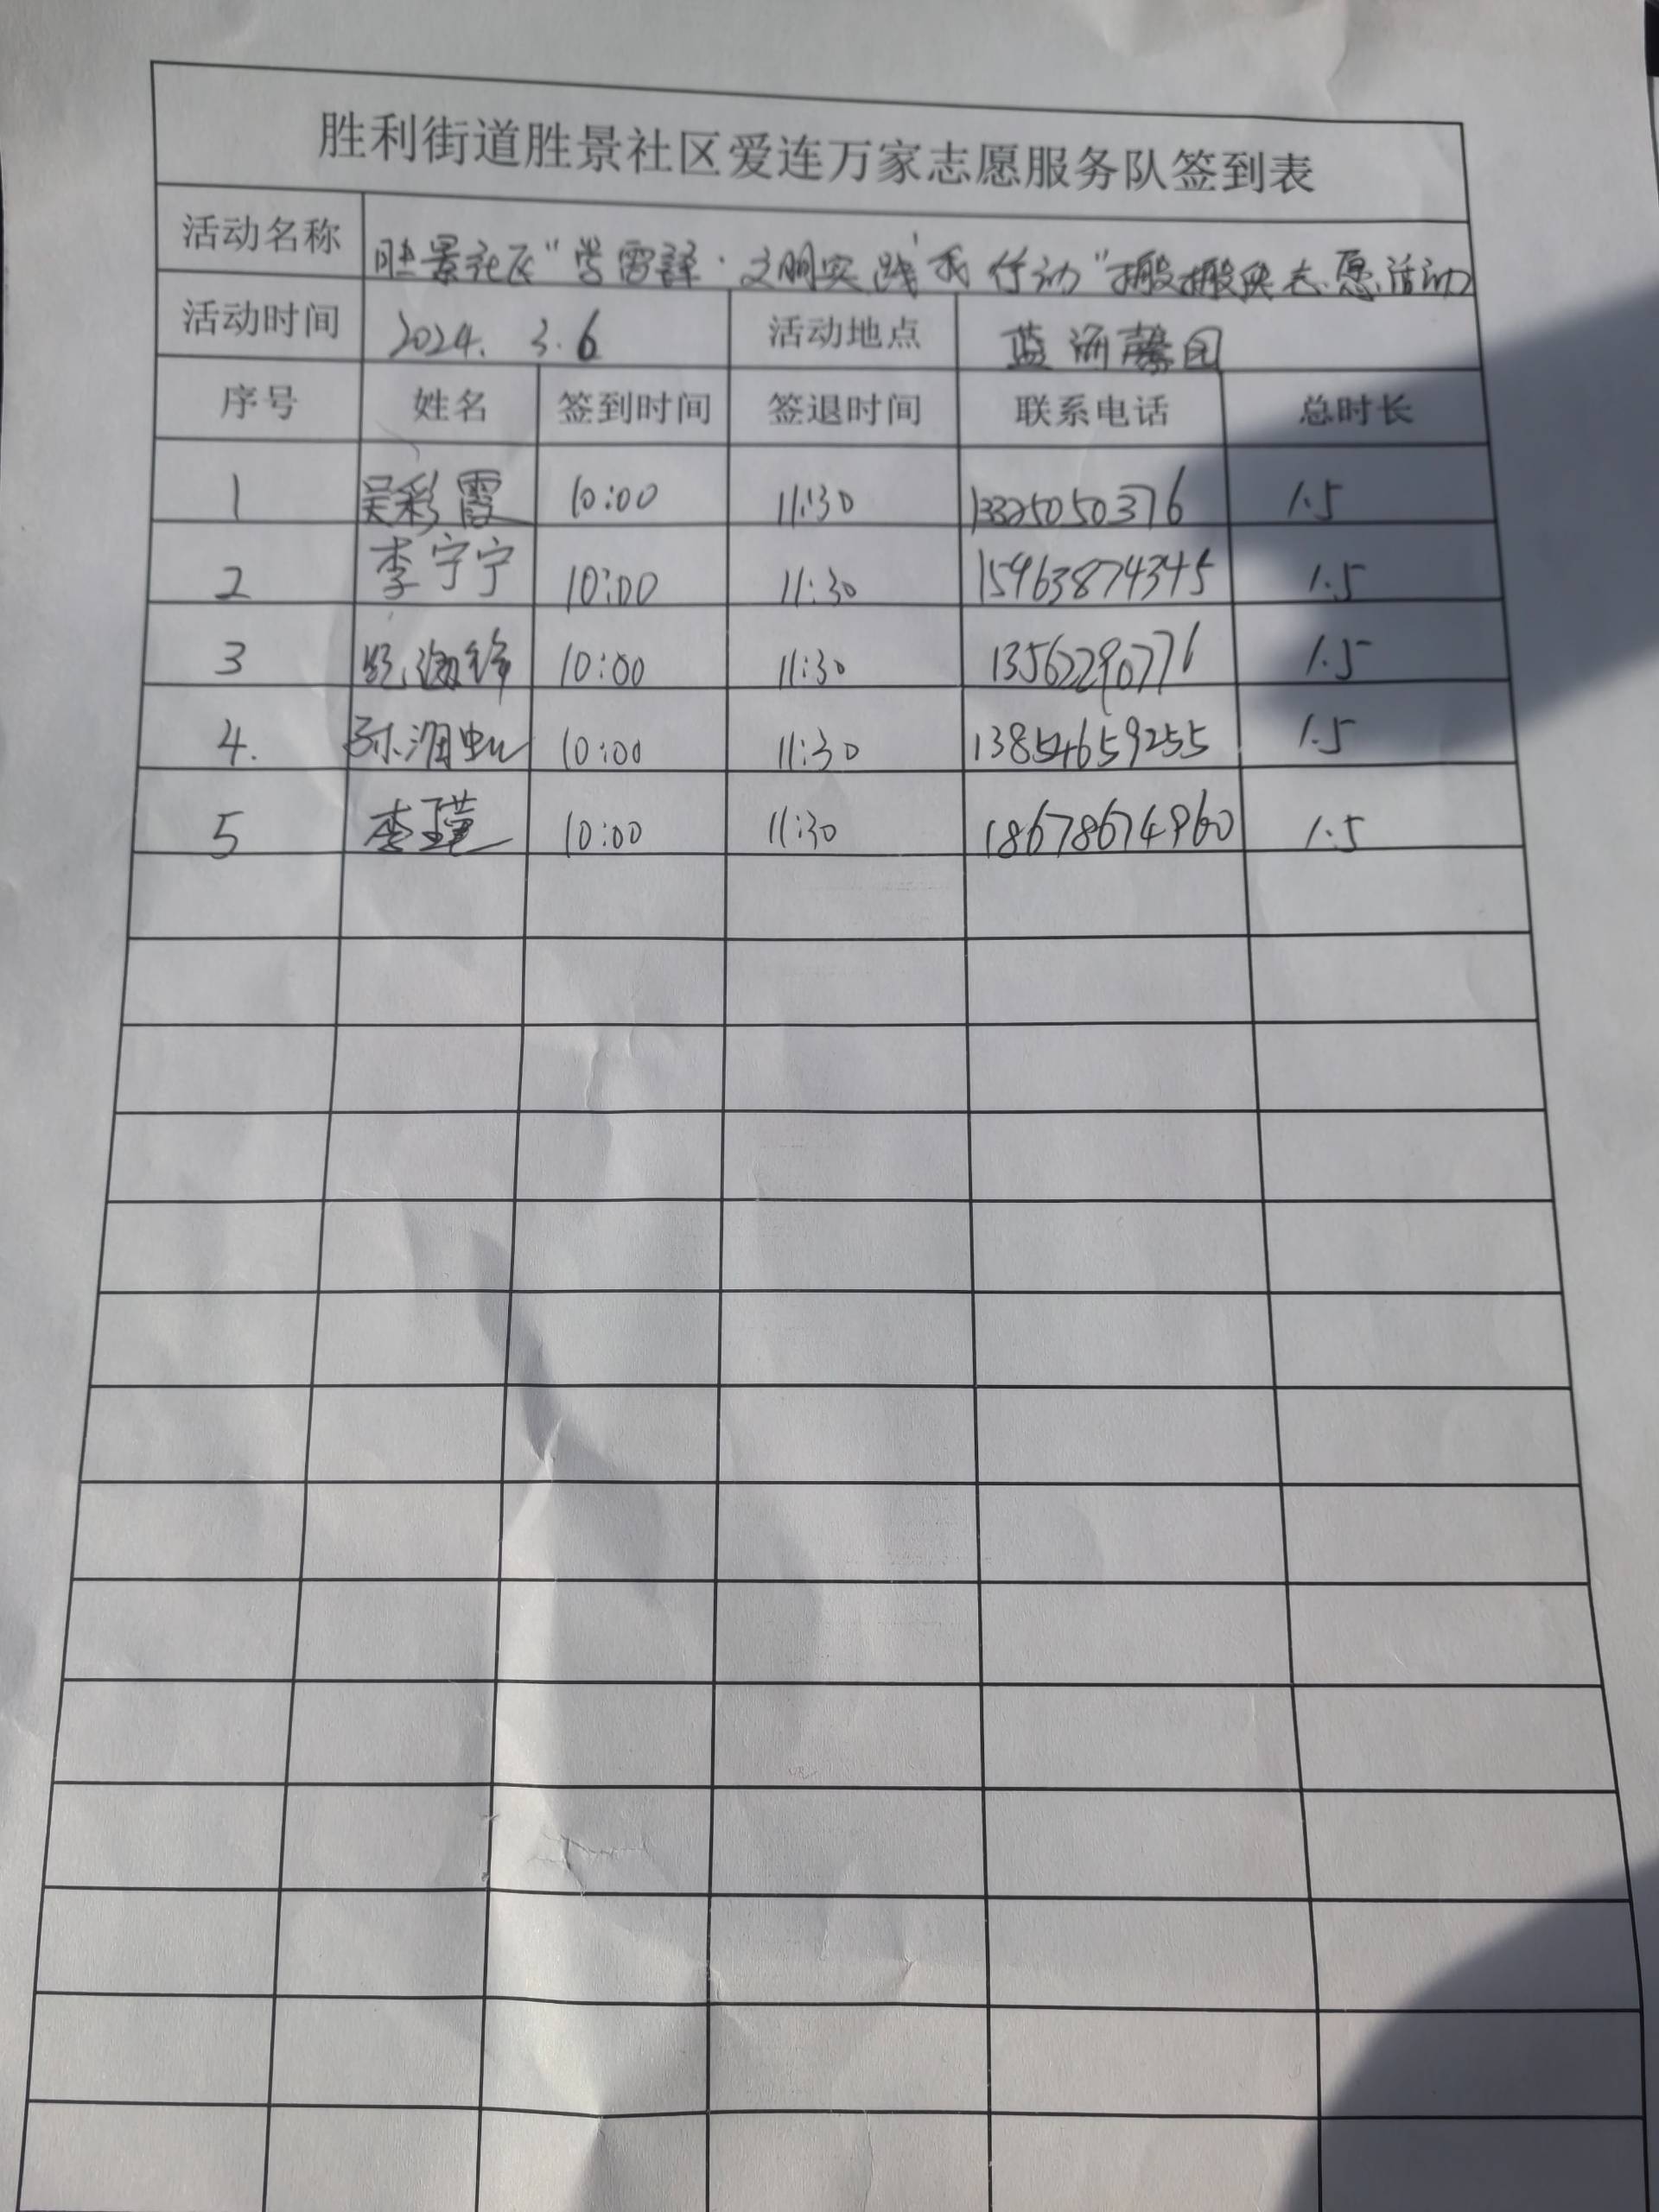 胜利街道胜景社区爱连万家志愿服务队签到表
活动名称 胜景社区“学雷锋·文明实践我行动”搬搬侠志愿活动
活动时间 2024. 3.6 活动地点 蓝海馨园
序号 姓名 签到时间 签退时间 联系电话 总时长
1 吴彩霞 10:00 11:30 13325050376 1.5
2 李宁宁 10:00 11:30 15963874345 1.5
3 海锋 10:00 11:30 13562290776 1.5
4. 10:00 11:30 13854659255 1.5
5 李瑾 10:00 11:30 18678674960 1.5